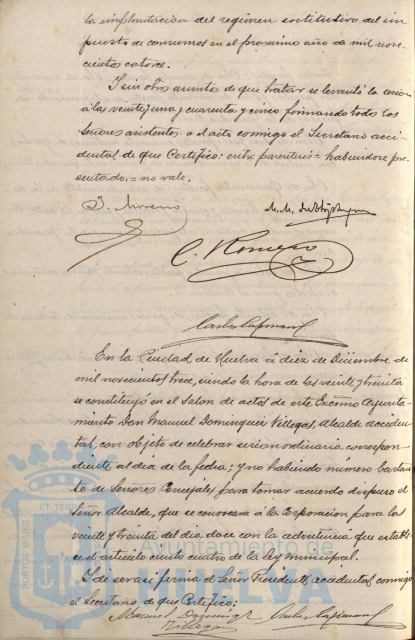 la implantacion del regimen sostitutivo del im
puesto de consumos en el proximo año de mil nove
cientos catorce.
I sin otro asunto de que tratar se levantó la sesion
a las veintejuna y cuarenta y cinco firmando todos los
Señores asistentes a el acta conmigo el Secretario acci
dental de que Certifico: entre parentesis = habiendose pre
sentado = no vale.
J. Moreno
M. M.
C. Romero
Carlos
En la Ciudad de Huelva á diez de Diciembre de
mil novecientos trece, siendo la hora de las veinte y treinta
se constituyó en el Salon de actos de este Excmo Ayunta
miento Don Manuel Dominguez Villegas, Alcalde acciden
tal, con objeto de celebrar sesion ordinaria correspon
diente al dia de la fecha; y no habiendo número bastan
te de Señores Concejales para tomar acuerdo dispuso el
Señor Alcalde, que se convocara á la Corporacion para las
veinte y treinta del dia doce con la advertencia que estable
ce el articulo ciento cuatro de la ley municipal.
I de ser asi firma el Señor Presidente accidental conmigo
el Secretario de que Certifico:
Manuel Doming z Carlos
Villegas
PORTUS MARIS
ET TERRAE
Ayuntamiento de
HUELVA